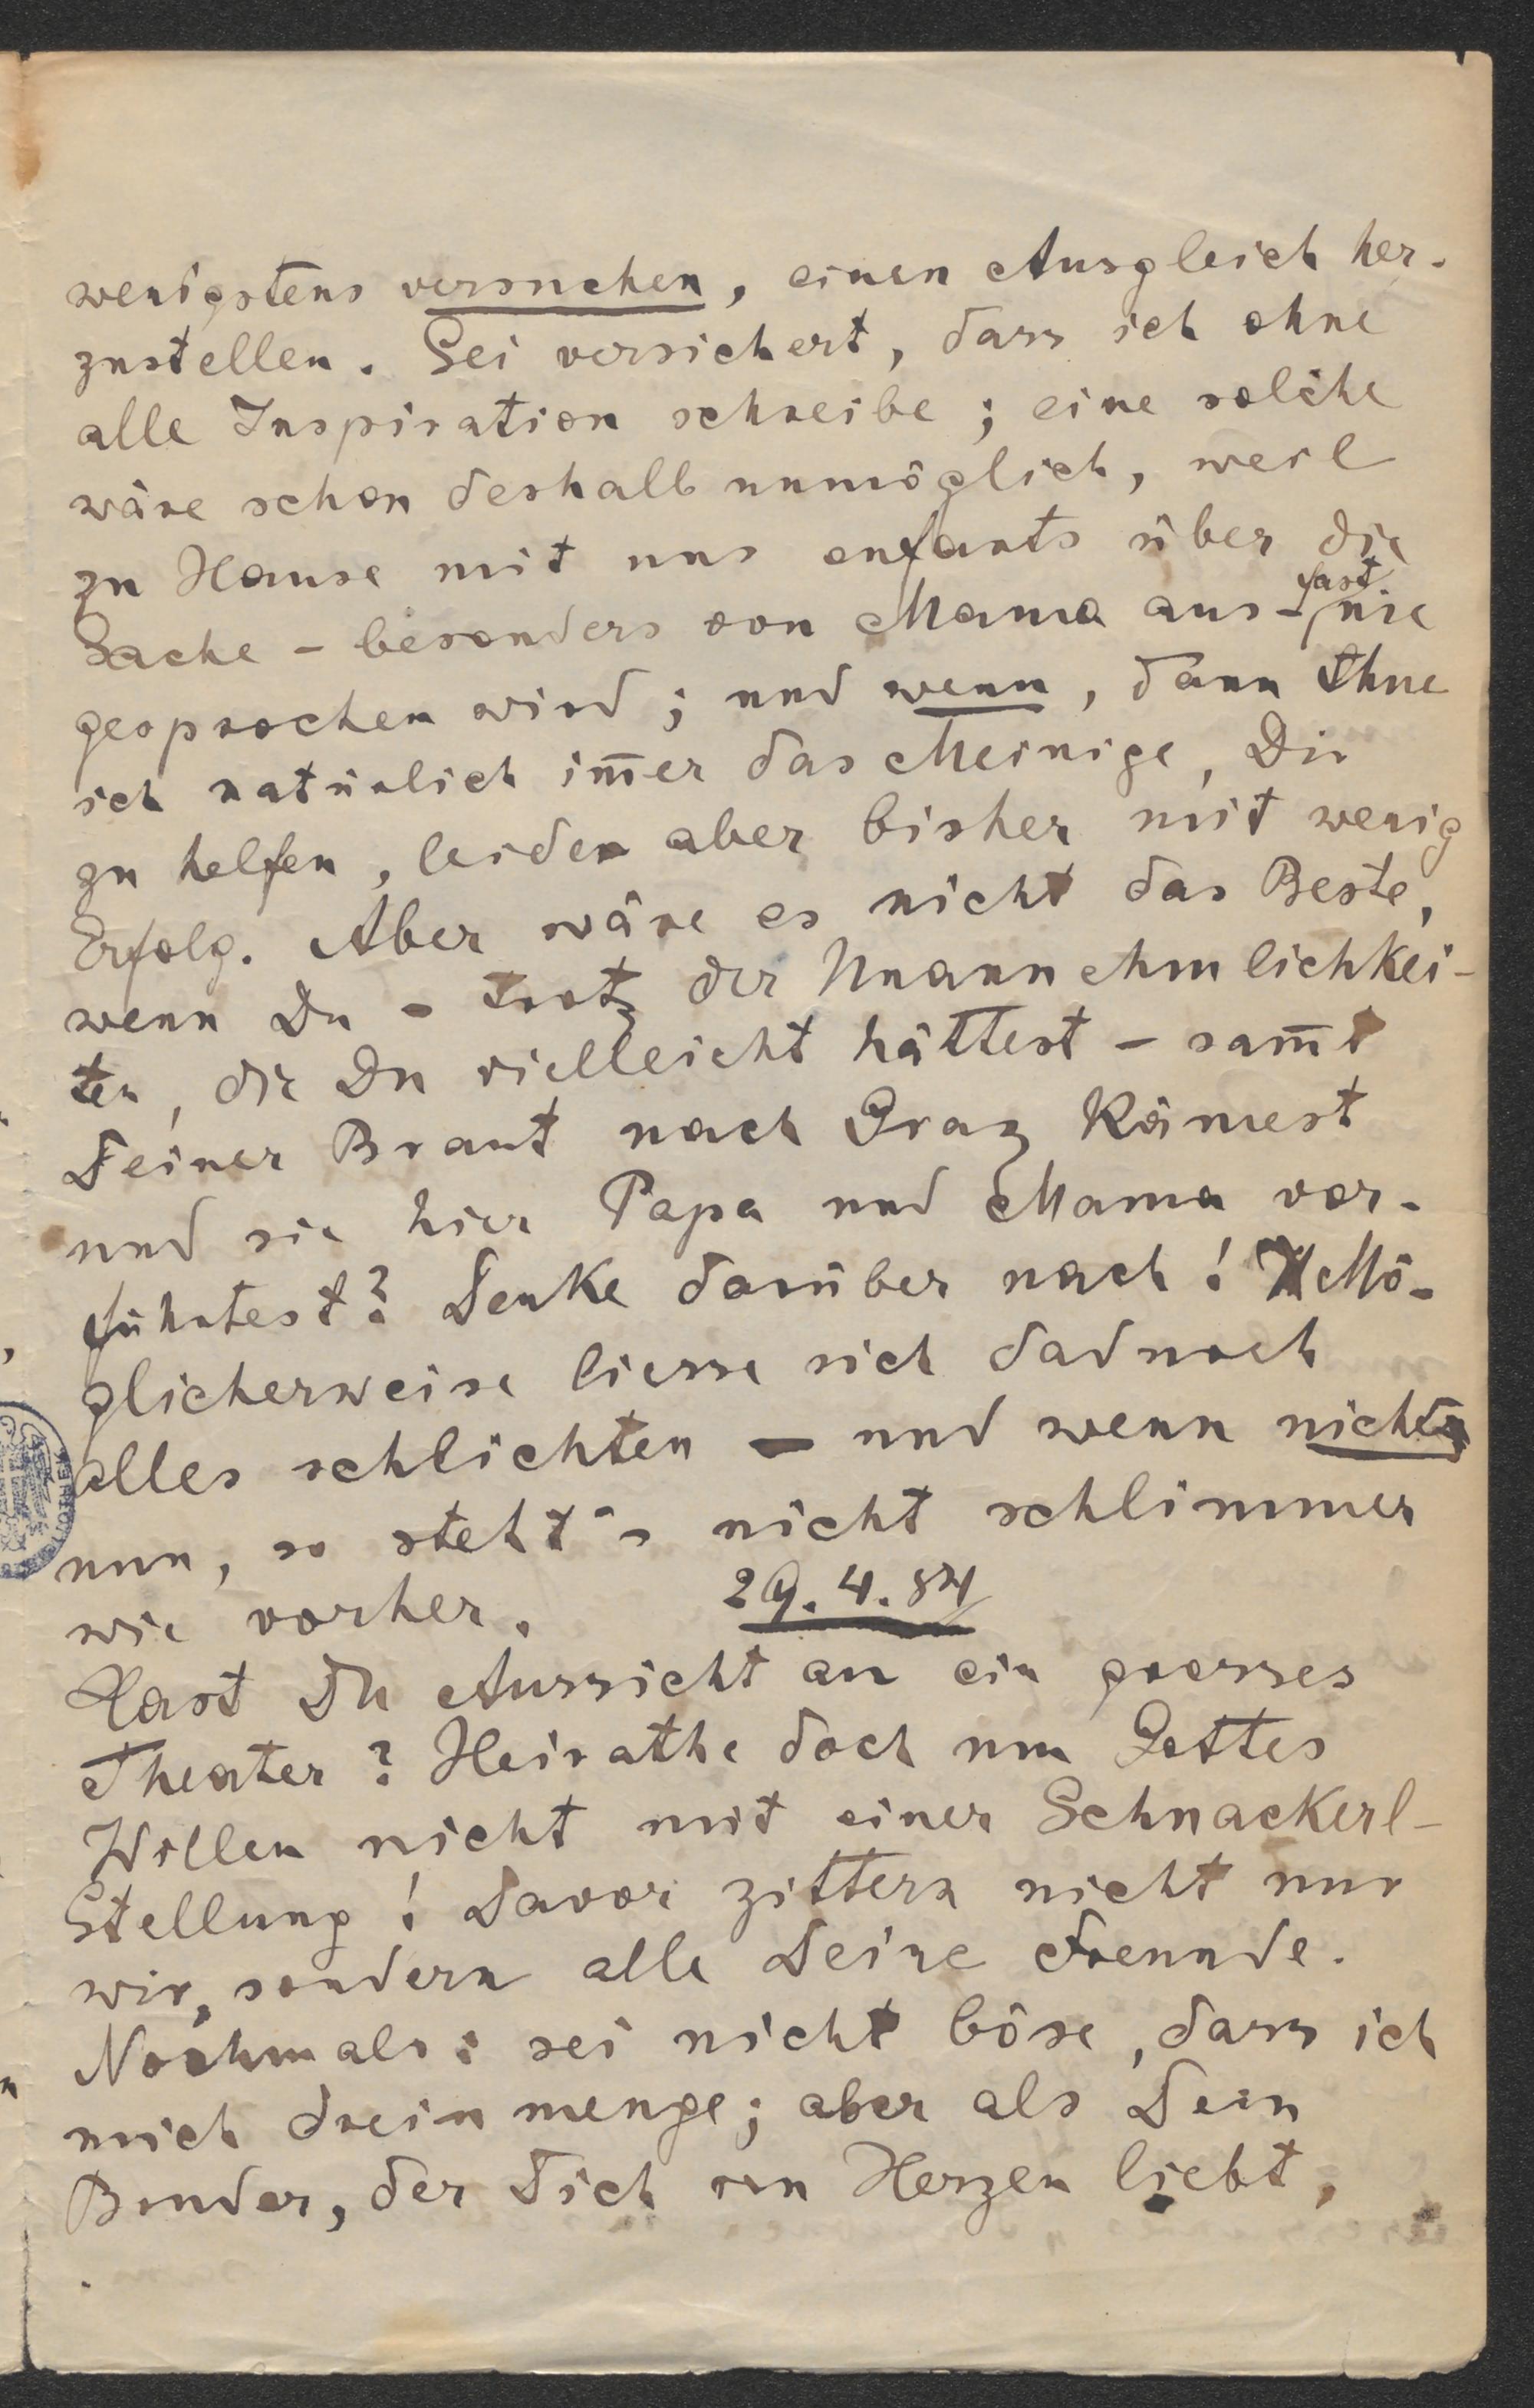 wenigstens versuchen, einen Ausgleich her-
zustellen. Sei versichert, dass ich ohne
alle Inspiration schreibe; eine solche
wäre schon deshalb unmöglich, weil
zu Hause mit uns enfants über die
Sache - besonders von Mama aus - fast nie
gesprochen wird; und wenn, dann thue
ich natürlich im̅er das Meinige, Dir
zu helfen, leider aber bisher mit wenig
Erfolg. Aber wäre es nicht das Beste,
wenn Du - trotz der Unannehmlichkei-
ten, die Du vielleicht hättest - sam̅t
Deiner Braut nach Graz kämest
und sie hier Papa und Mama vor-
führtest? Denke darüber nach! Mö-
glicherweise liesse sich dadurch
alles schlichten - und wenn nicht,
nun, so steht's nicht schlimmer
wie vorher. 29.4.84
Hast Du Aussicht an ein grosses
Theater? Heirathe doch um Gottes
Willen nicht mit einer Schnackerl-
Stellung! Davor zittern nicht nur
wir, sondern alle Deine Freunde.
Nochmals: sei nicht böse, dass ich
mich dreinmenge; aber als Dein
Bruder, der Dich von Herzen liebt,